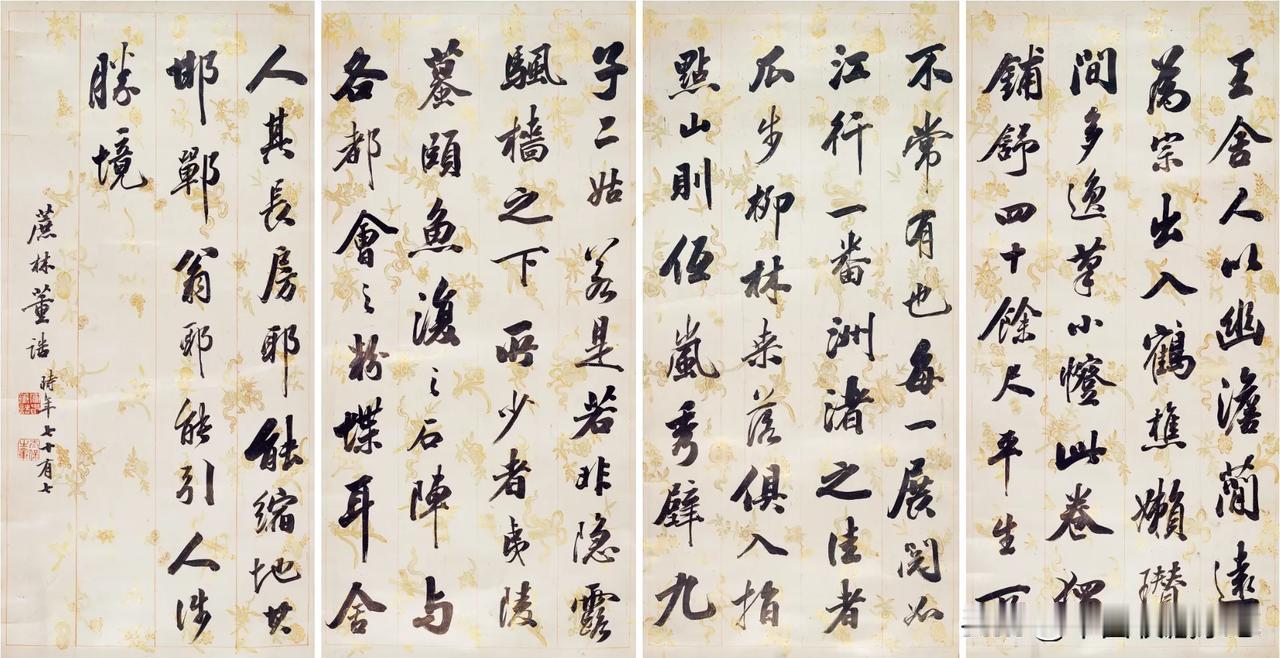 王舍人以幽澹簡遠
為宗出入鶴樵嬾瓚
間多逸筆小此卷獨
鋪舒四十餘尺平生
不常有也每一展閱如
江行一番洲渚之佳者
瓜步柳林来落俱入指
點山則伍嵐秀壁九
子二姑若是若非隱露
颿檣之下所少者夷陵
蟇頤魚復之石陣与
各都會之粉堞耳舍
人其長房耶能縮地其
邯鄲翁耶能引人涉
勝境
蔗林董誥時年七十有七